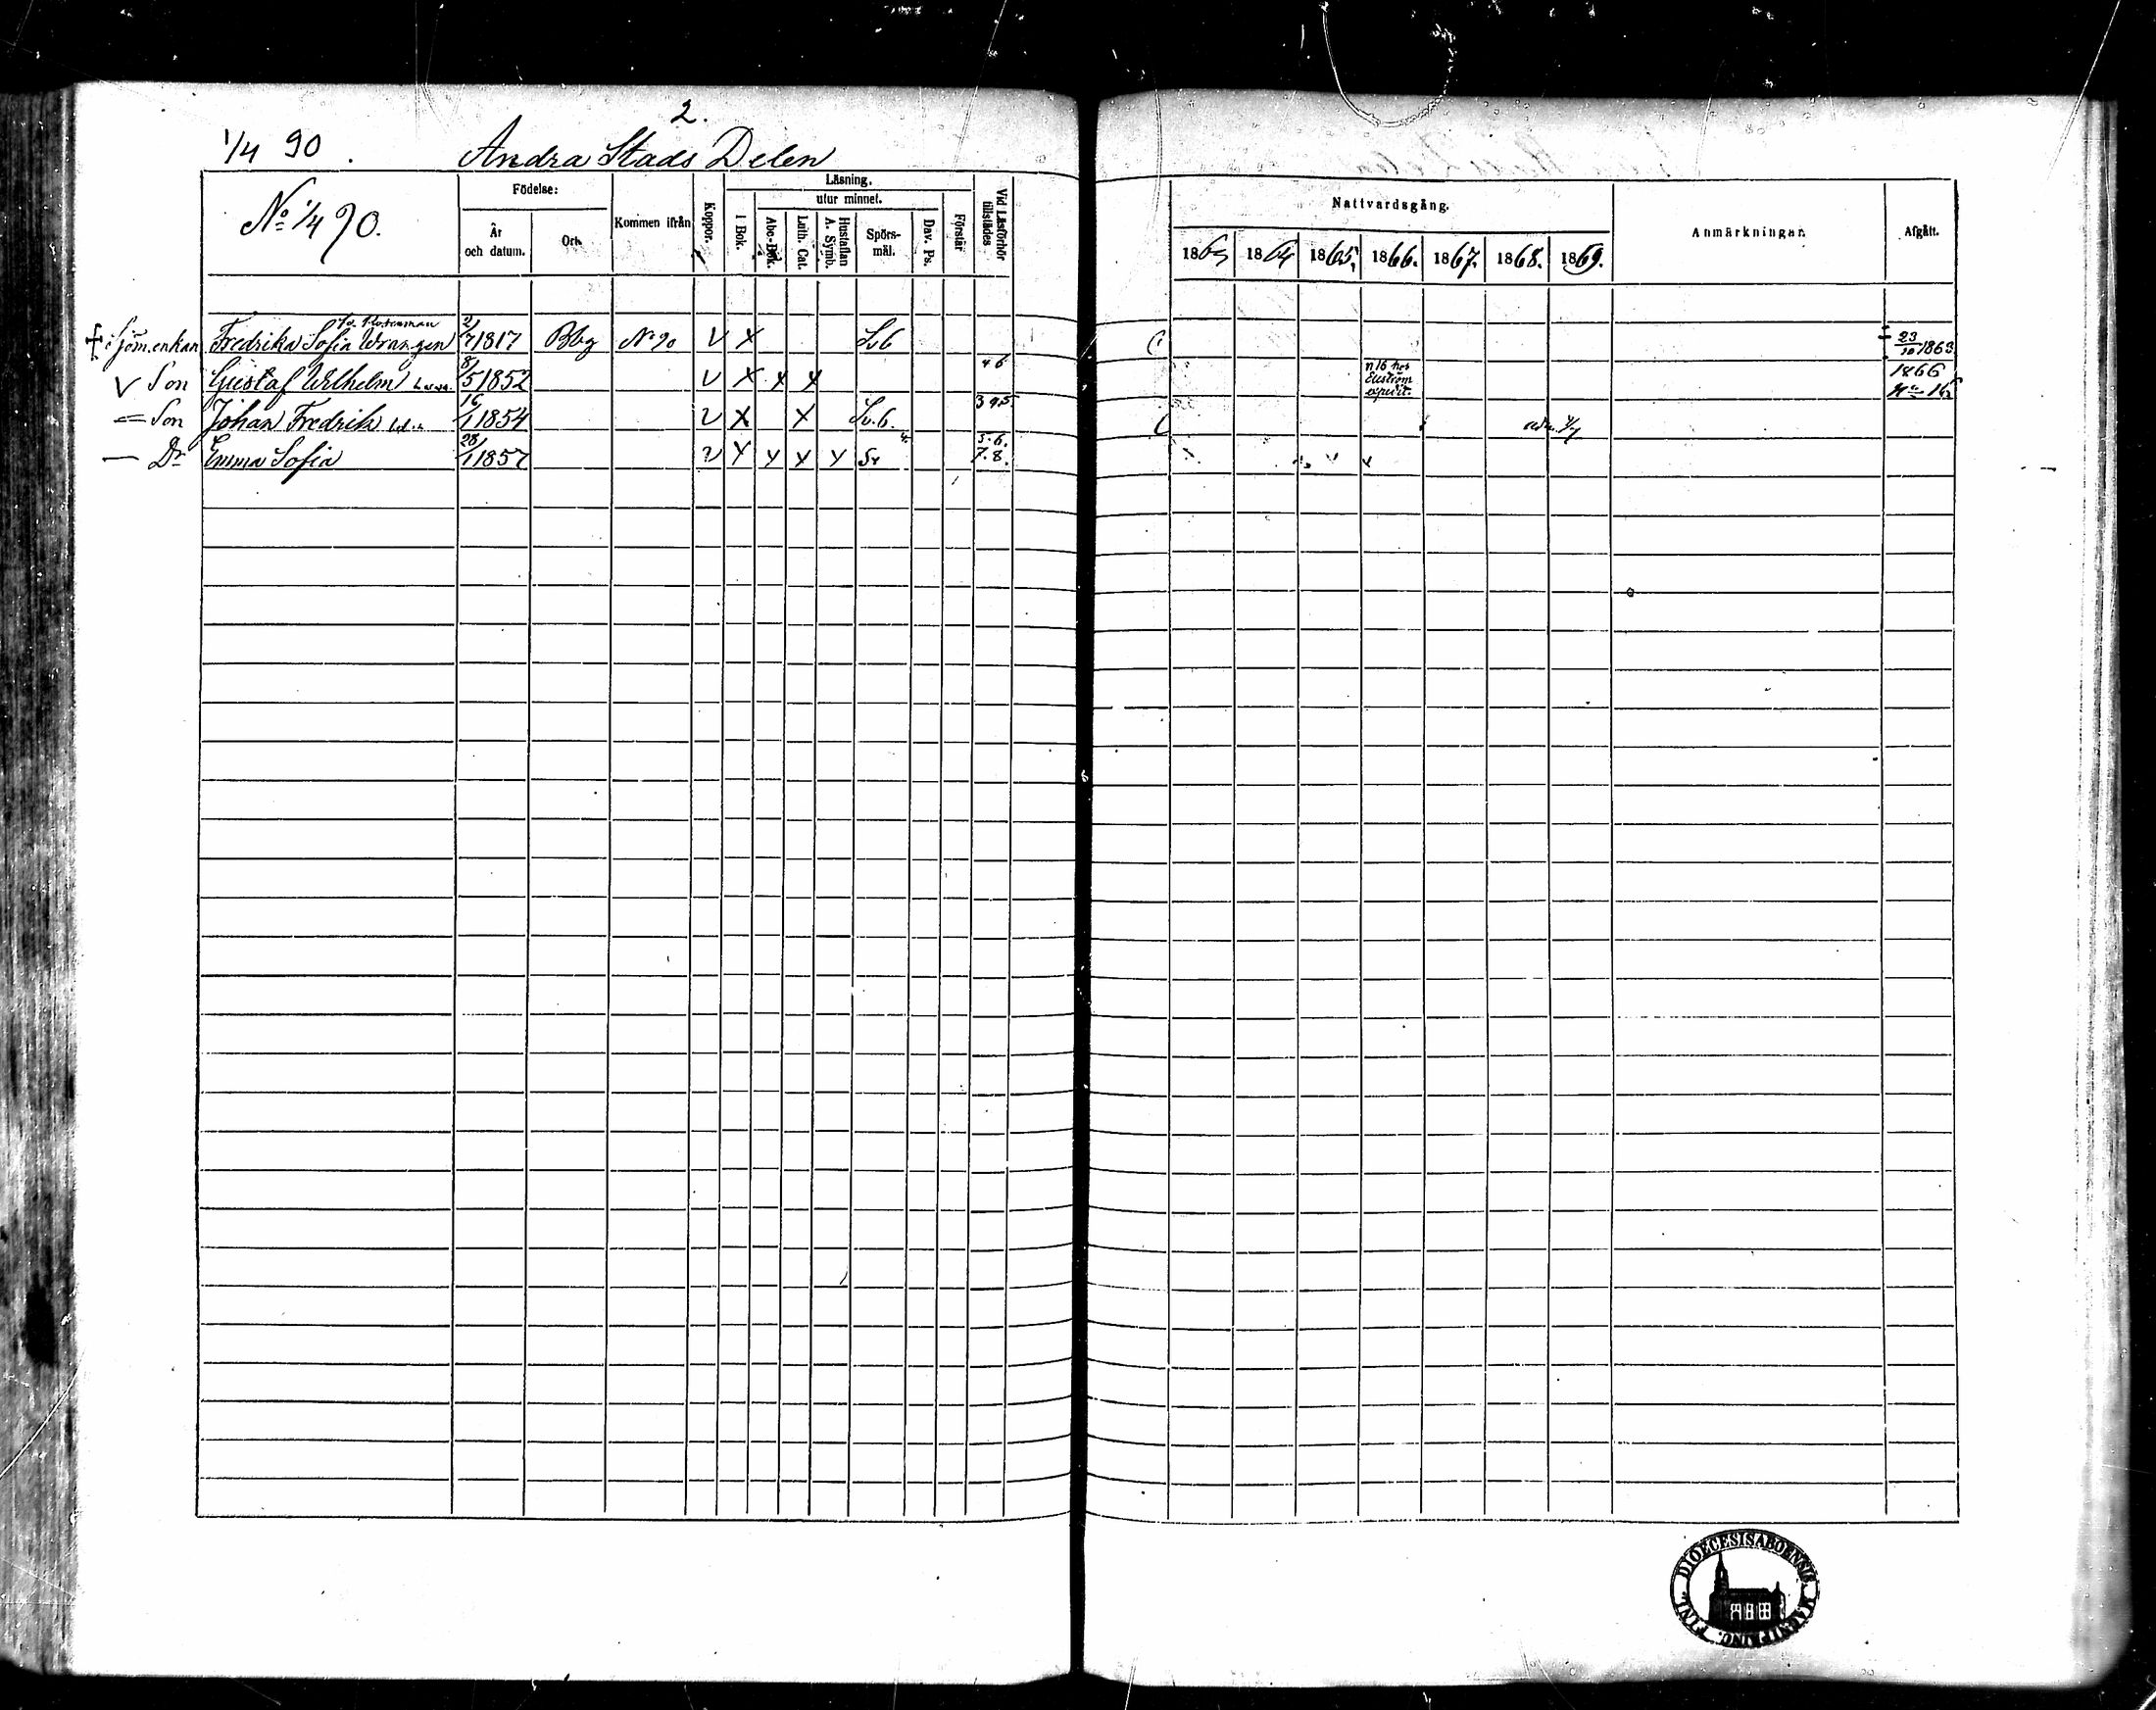 2.
1/4 90. Andra Stads Delen
No 1/4 90.
Födelse:
År och datum.
Ort.
Kommen ifrån
Koppor.
Läsning.
I Bok.
utur minnet.
Abc-Bok.
Luth. Cat.
Hustaflan A. Symb.
Spörsmål.
Dav. Ps.
Förstår
Vid Läsförhör tillstädes
Nattvardsgång.
1863 1864 1865. 1866. 1867. 1868. 1869.
Anmärkningar.
Afgått.
† Sjöm.enkan Fredrika Sofia Wrangen 2/7 1817 Bbg No 90 V X Sv.6 23/10 1863
V Son Gustaf Wilhelm 8/5 1852 V X X X 4 6 n 16 hos Ekström 1866 No 16
= Son Johan Fredrik 16/1 1854 V X X Sv.6. 3 4.5
— Dr Emma Sofia 28/1 1857 V X X X X Sv 5.6. 7.8.
DIOECESIS ABOENSIS MAGNI PRINC. FINL.